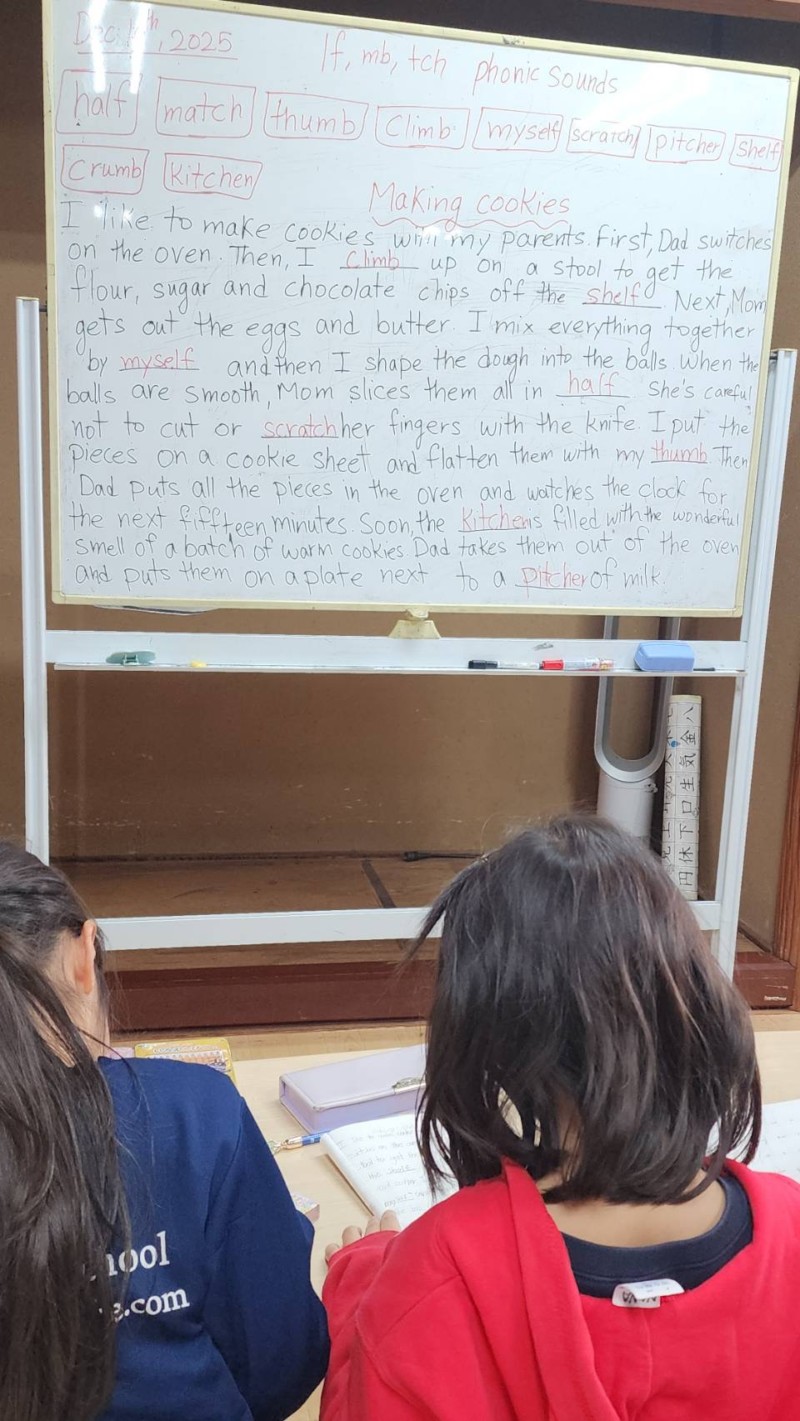 Dec. th, 2025
lf, mb, tch phonic sounds
half match thumb Climb myself scratch pitcher shelf
Crumb kitchen
Making cookies
I like to make cookies with my parents. First, Dad switches
on the oven. Then, I climb up on a stool to get the
flour, sugar and chocolate chips off the shelf. Next, Mom
gets out the eggs and butter. I mix everything together
by myself and then I shape the dough into the balls. When the
balls are smooth, Mom slices them all in half. She's careful
not to cut or scratch her fingers with the knife. I put the
pieces on a cookie sheet and flatten them with my thumb. Then
Dad puts all the pieces in the oven and watches the clock for
the next fiffteen minutes. Soon, the kitchen is filled with the wonderful
smell of a batch of warm cookies. Dad takes them out of the oven
and puts them on a plate next to a pitcher of milk.
八金気生口下休円
hool
e.com